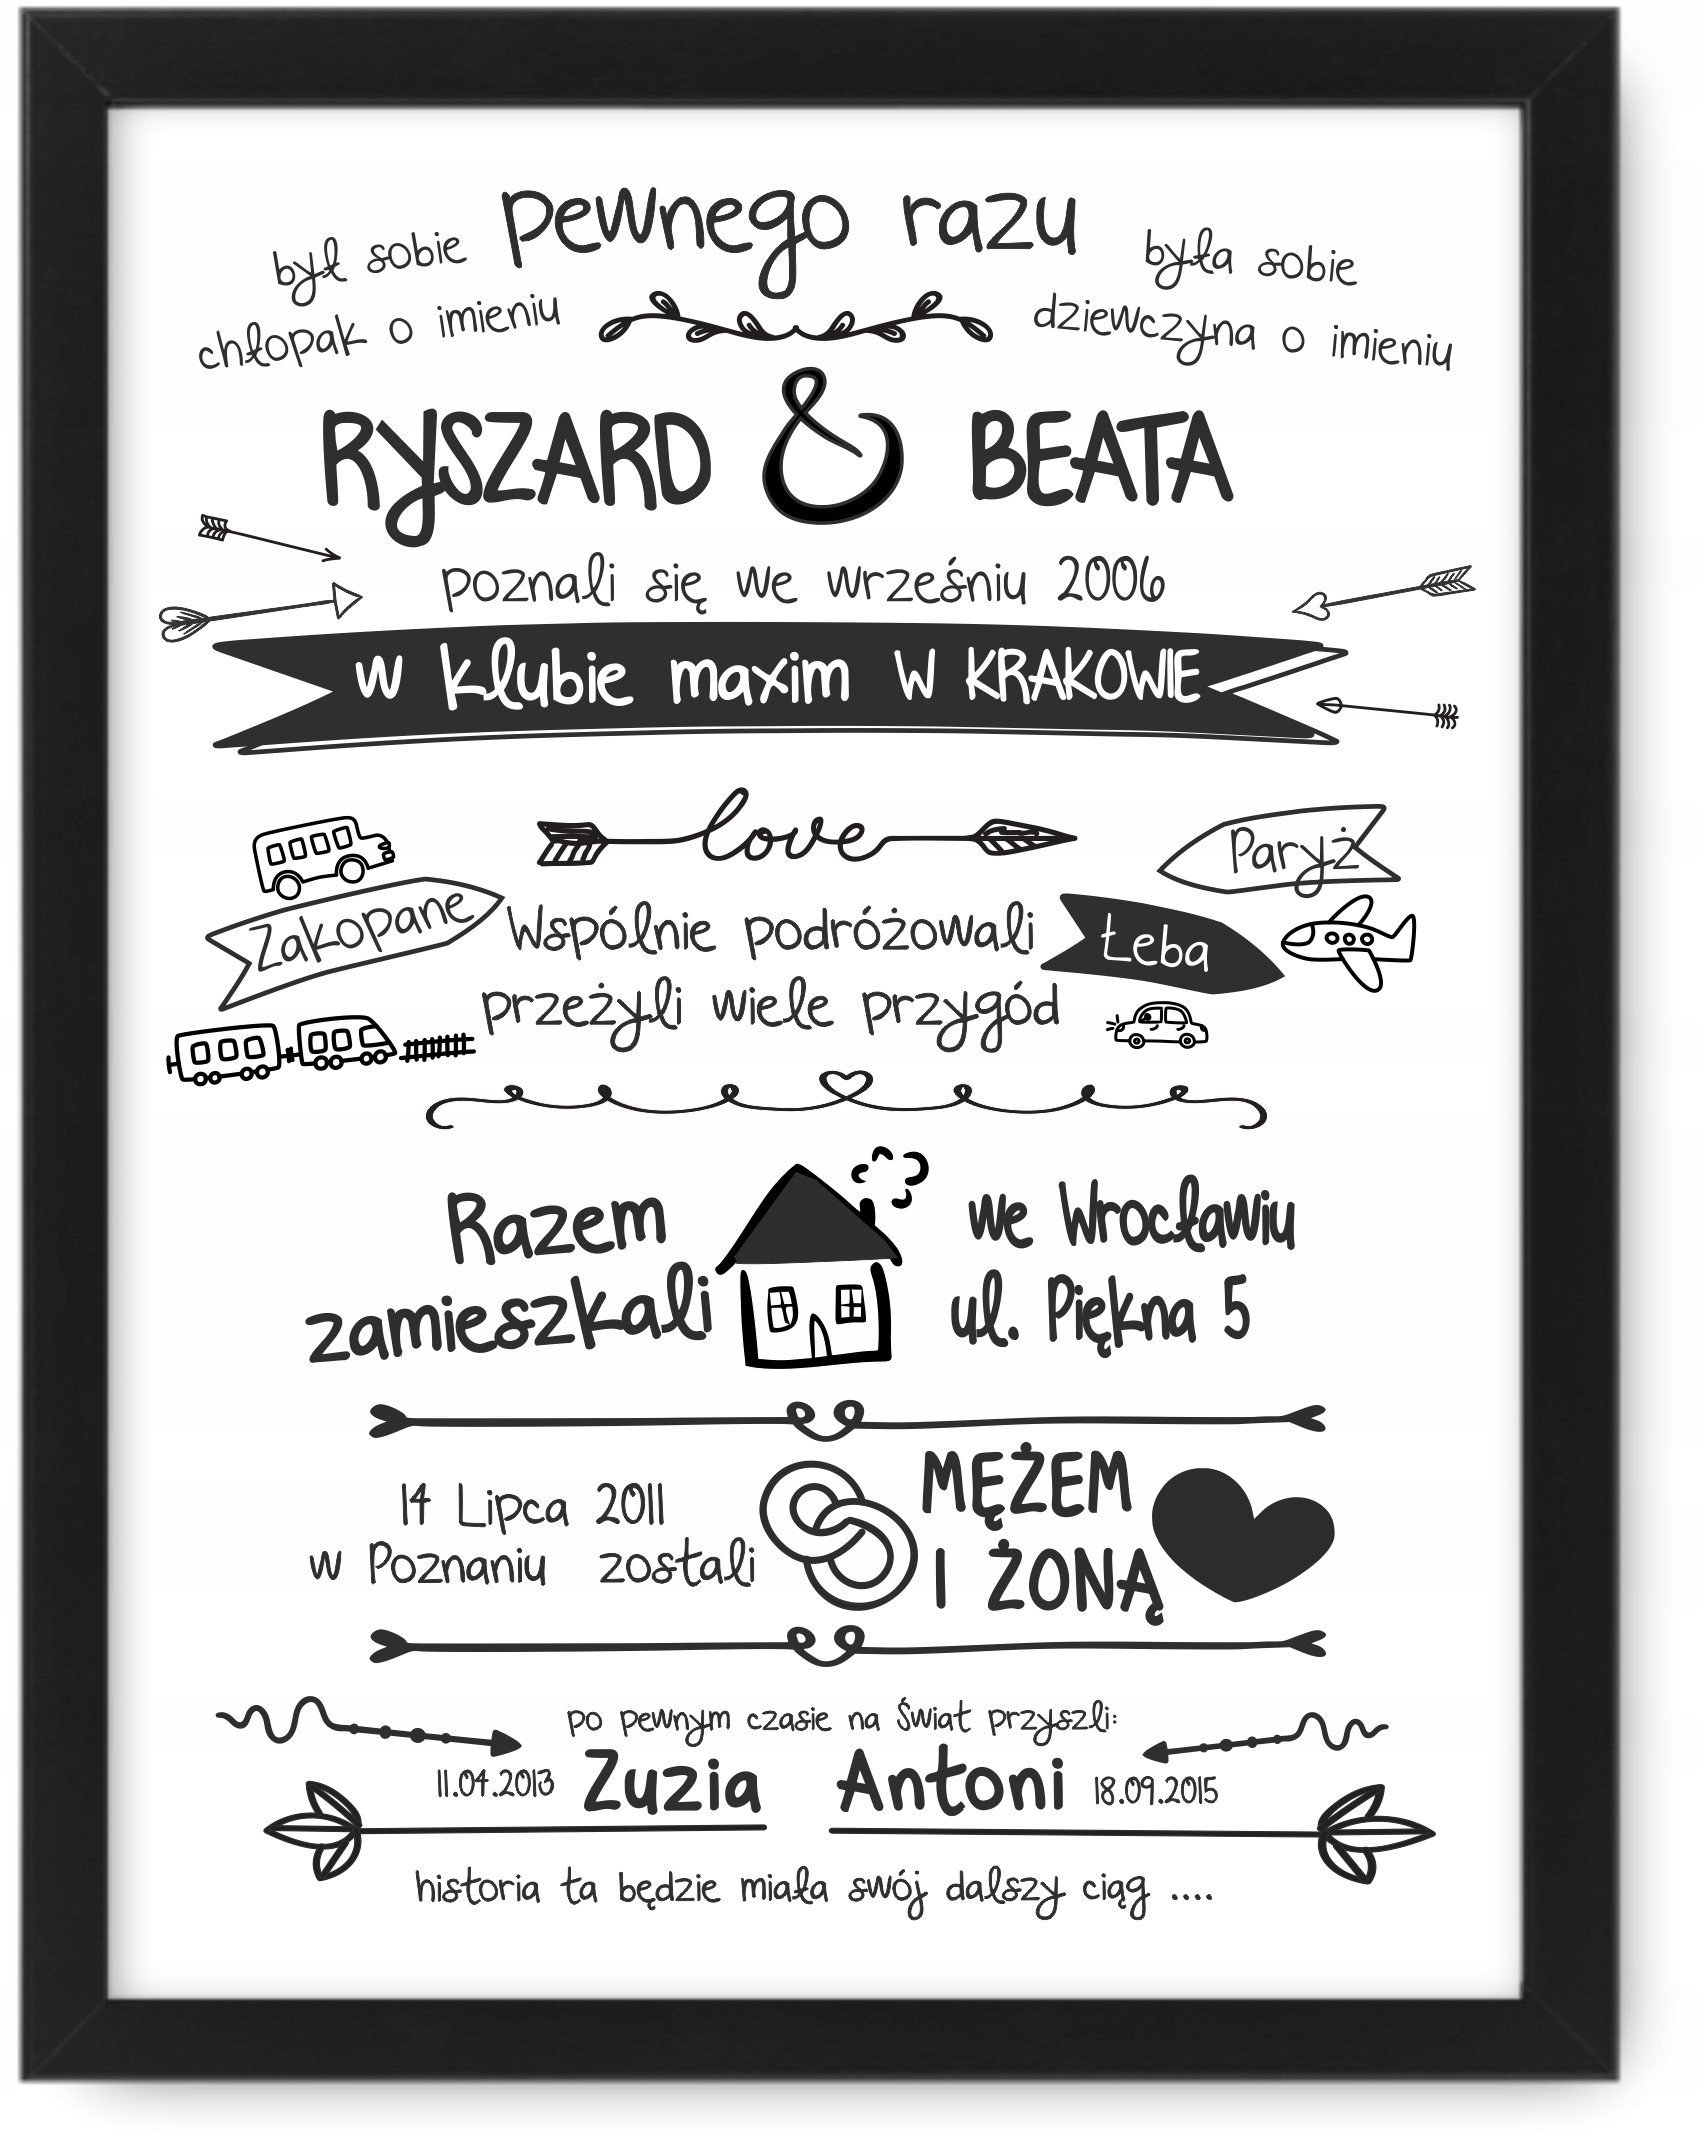 pewnego razu
był sobie
chłopak o imieniu
była sobie
dziewczyna o imieniu
RYSZARD & BEATA
poznali się we wrześniu 2006
w klubie maxim W KRAKOWIE
love
Zakopane
Wspólnie podróżowali
przeżyli wiele przygód
Paryż
Łeba
Razem
zamieszkali
we Wrocławiu
ul. Piękna 5
14 Lipca 2011
w Poznaniu zostali
MĘŻEM
I ŻONĄ
po pewnym czasie na Świat przyszli:
11.04.2013 Zuzia Antoni 18.09.2015
historia ta będzie miała swój dalszy ciąg ....